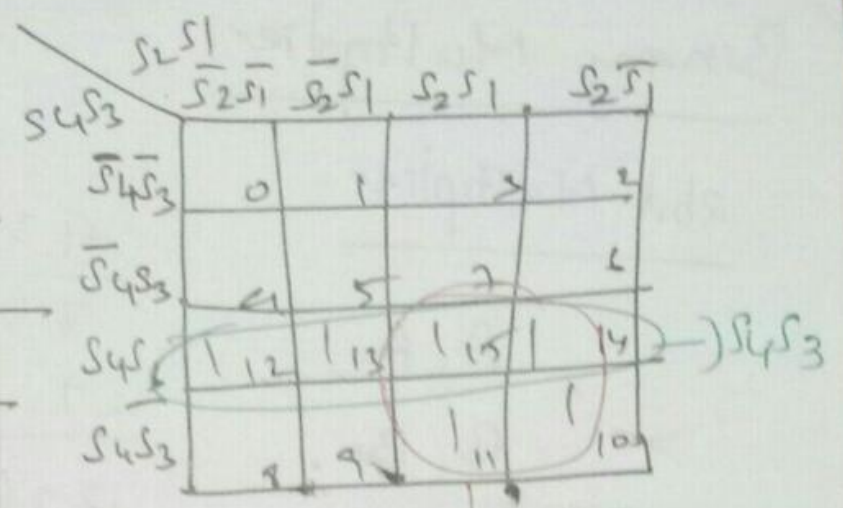 S2 S1
S̅2S̅1 S̅2S1 S2S1 S2S̅1
S4S3
S̅4S̅3 0 1 3 2
S̅4S3 4 5 7 6
S4S 1 12 1 13 1 15 1 14 S4S3
S4S3 8 9 1 11 1 10